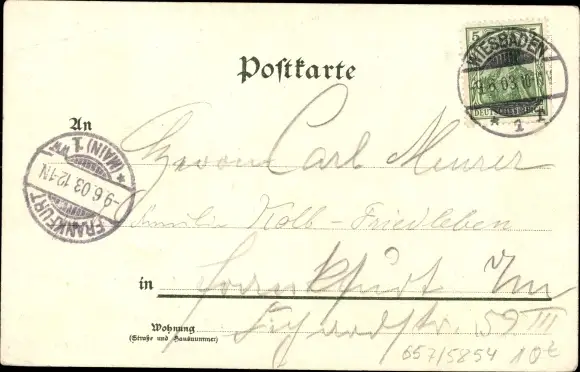 Postkarte
5
WIESBADEN
9.6.03
DEUTSCHES REICH
* 1 *
An
Herrn Carl Meurer
FRANKFURT
* (MAIN) 1
-9.6.03.12-1N
Familie Kolb-Friedleben
in Frankfurt
Wohnung
(Straße und Hausnummer)
Fichardstr. 59 III
657/5854 10